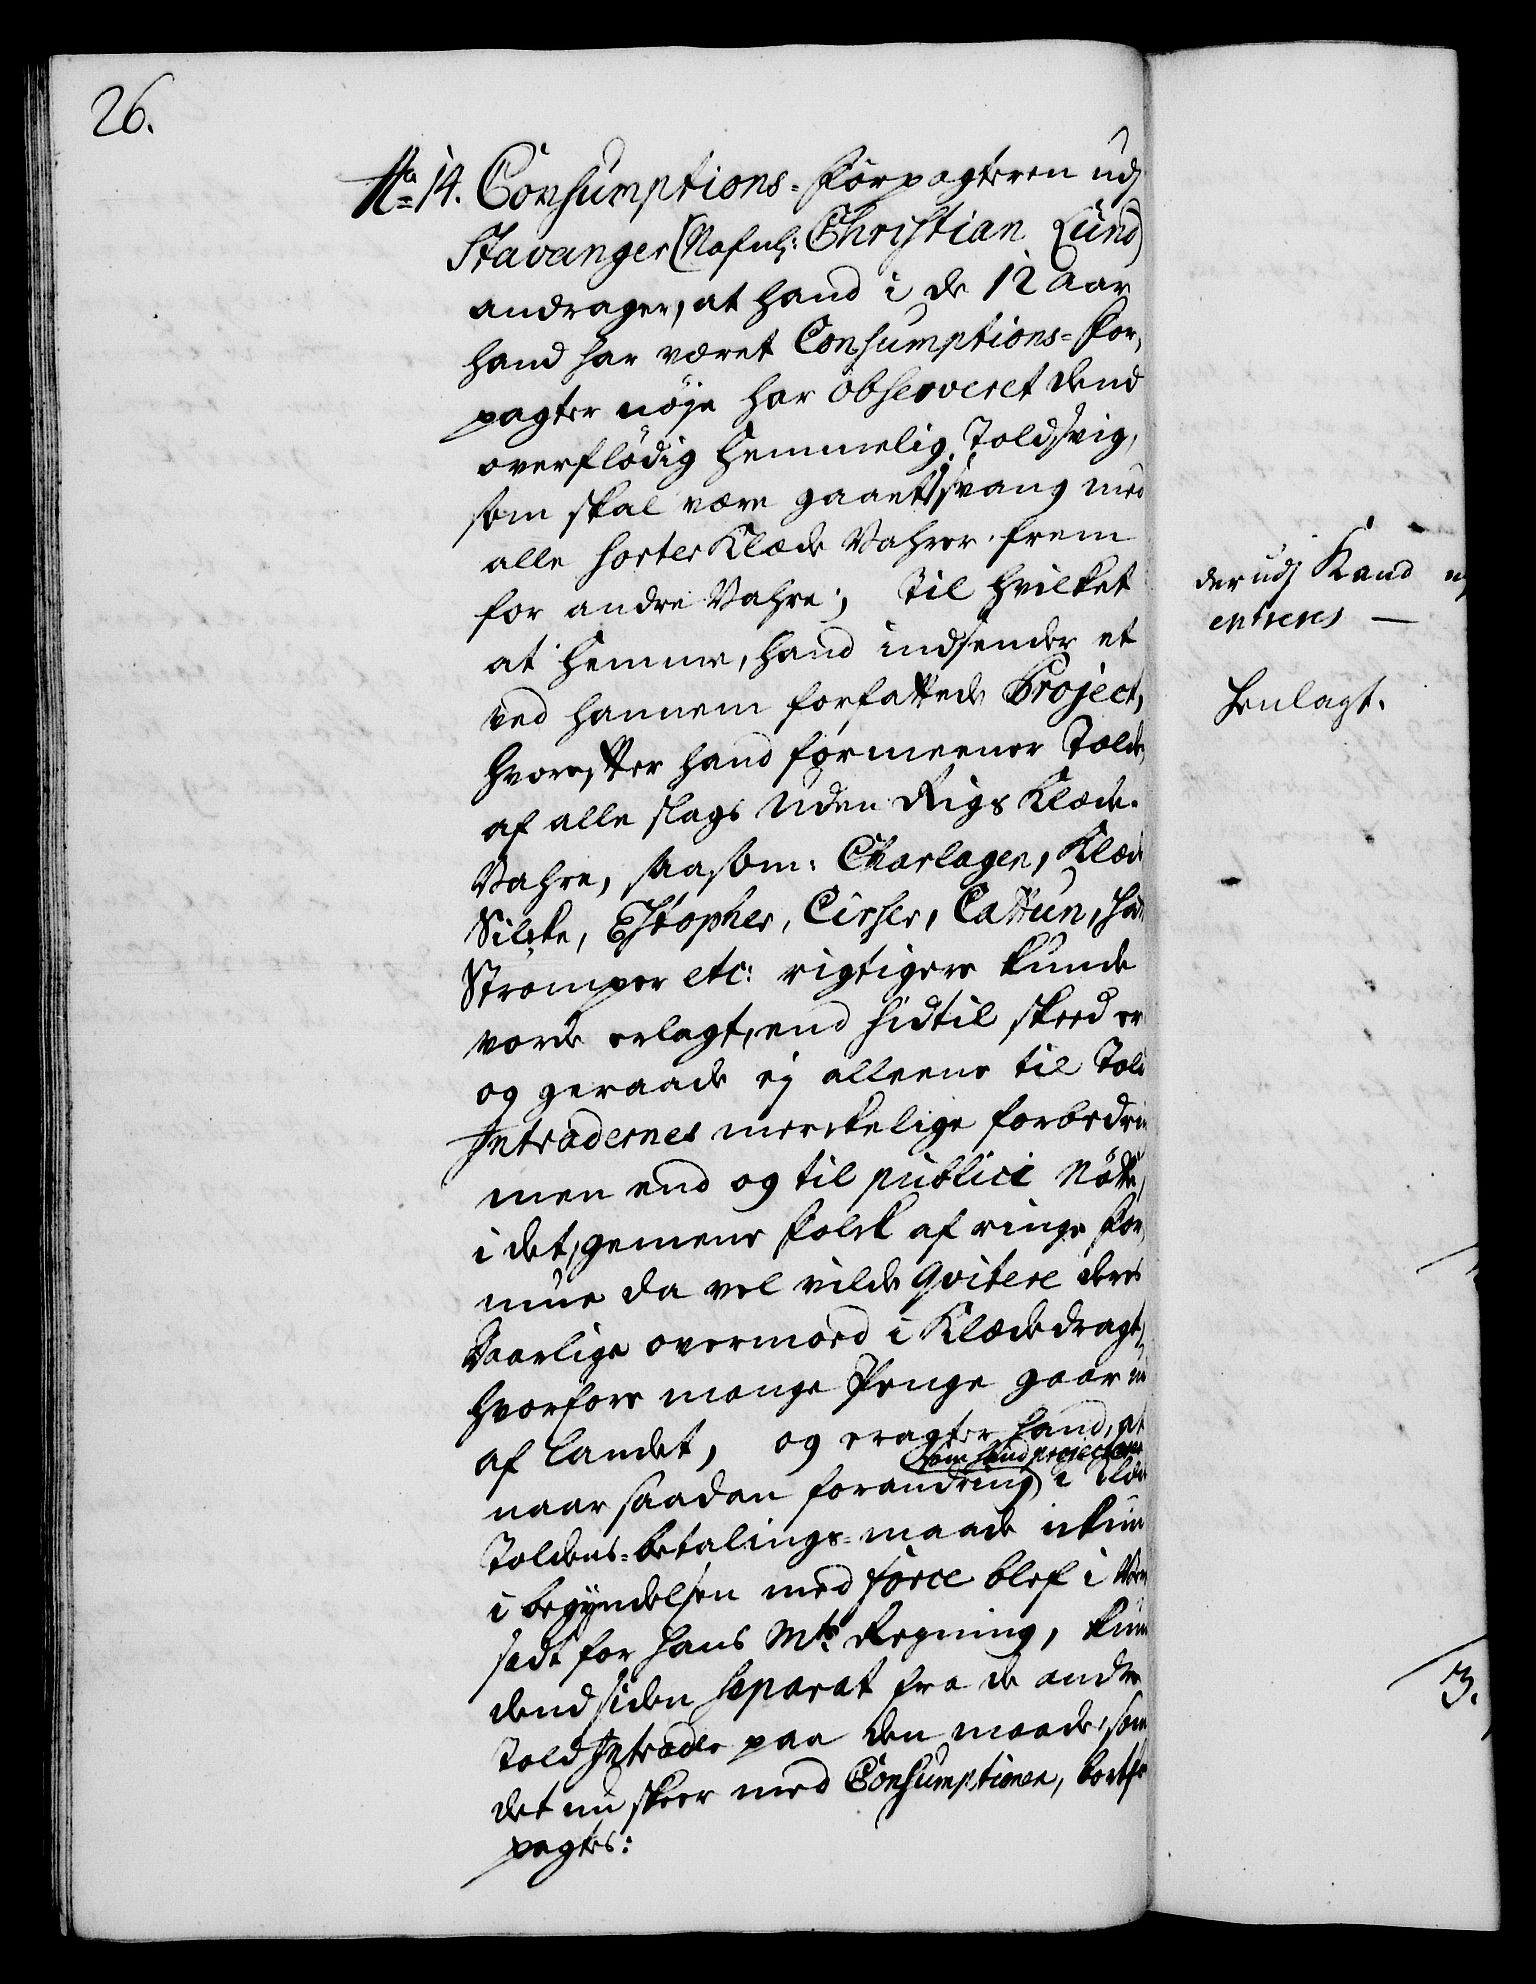 26.
No 14. Consumptions-Forpagteren udj
Stavanger (Nafnl: Christian Lund)
andrager, at hand i de 12 Aar
hand har været Consumptions-For,
pagter nöje har observeret dend
overflödig hemmelig Toldsvig,
som skal være gaaet i svang med
alle sorter Klæde Vahrer frem
for andre Vahre; Til hvilket
at hemme, hand indsender et
ved hannem forfattede Project,
hvorefter hand formeener Tolde
af alle slags uden Rigs Klæde-
Vahre, saasom: Charlagen, Klæde
Silcke, Estopher, Cirser, Cattun,
Strømper etc: rigtigere kunde
vorde erlagt, end hidtil skeed er
og geraade ej alleene til Told
Intradernes merckelige forbedrin
men end og til publici Nötte,
i det, gemene Folck af ringe For,
mue da vel vilde qvitere deres
Daarlige overmoed i Klædedragt,
hvorfore mange Penge gaar ud
af Landet, og eragter hand, at
som hand projecterer
naar saadan forandring i Klæde
Toldens-betalings-maade ickun
i begyndelsen med force blef i Verck
sadt for Hans Mts Regning, kunde
dend siden separat fra de andre
Told Intrader paa den maade, som
det nu skeer med Consumptionen, bortfor
pagtes:
derudj Kand ej
entreres —
Henlagt.
3.